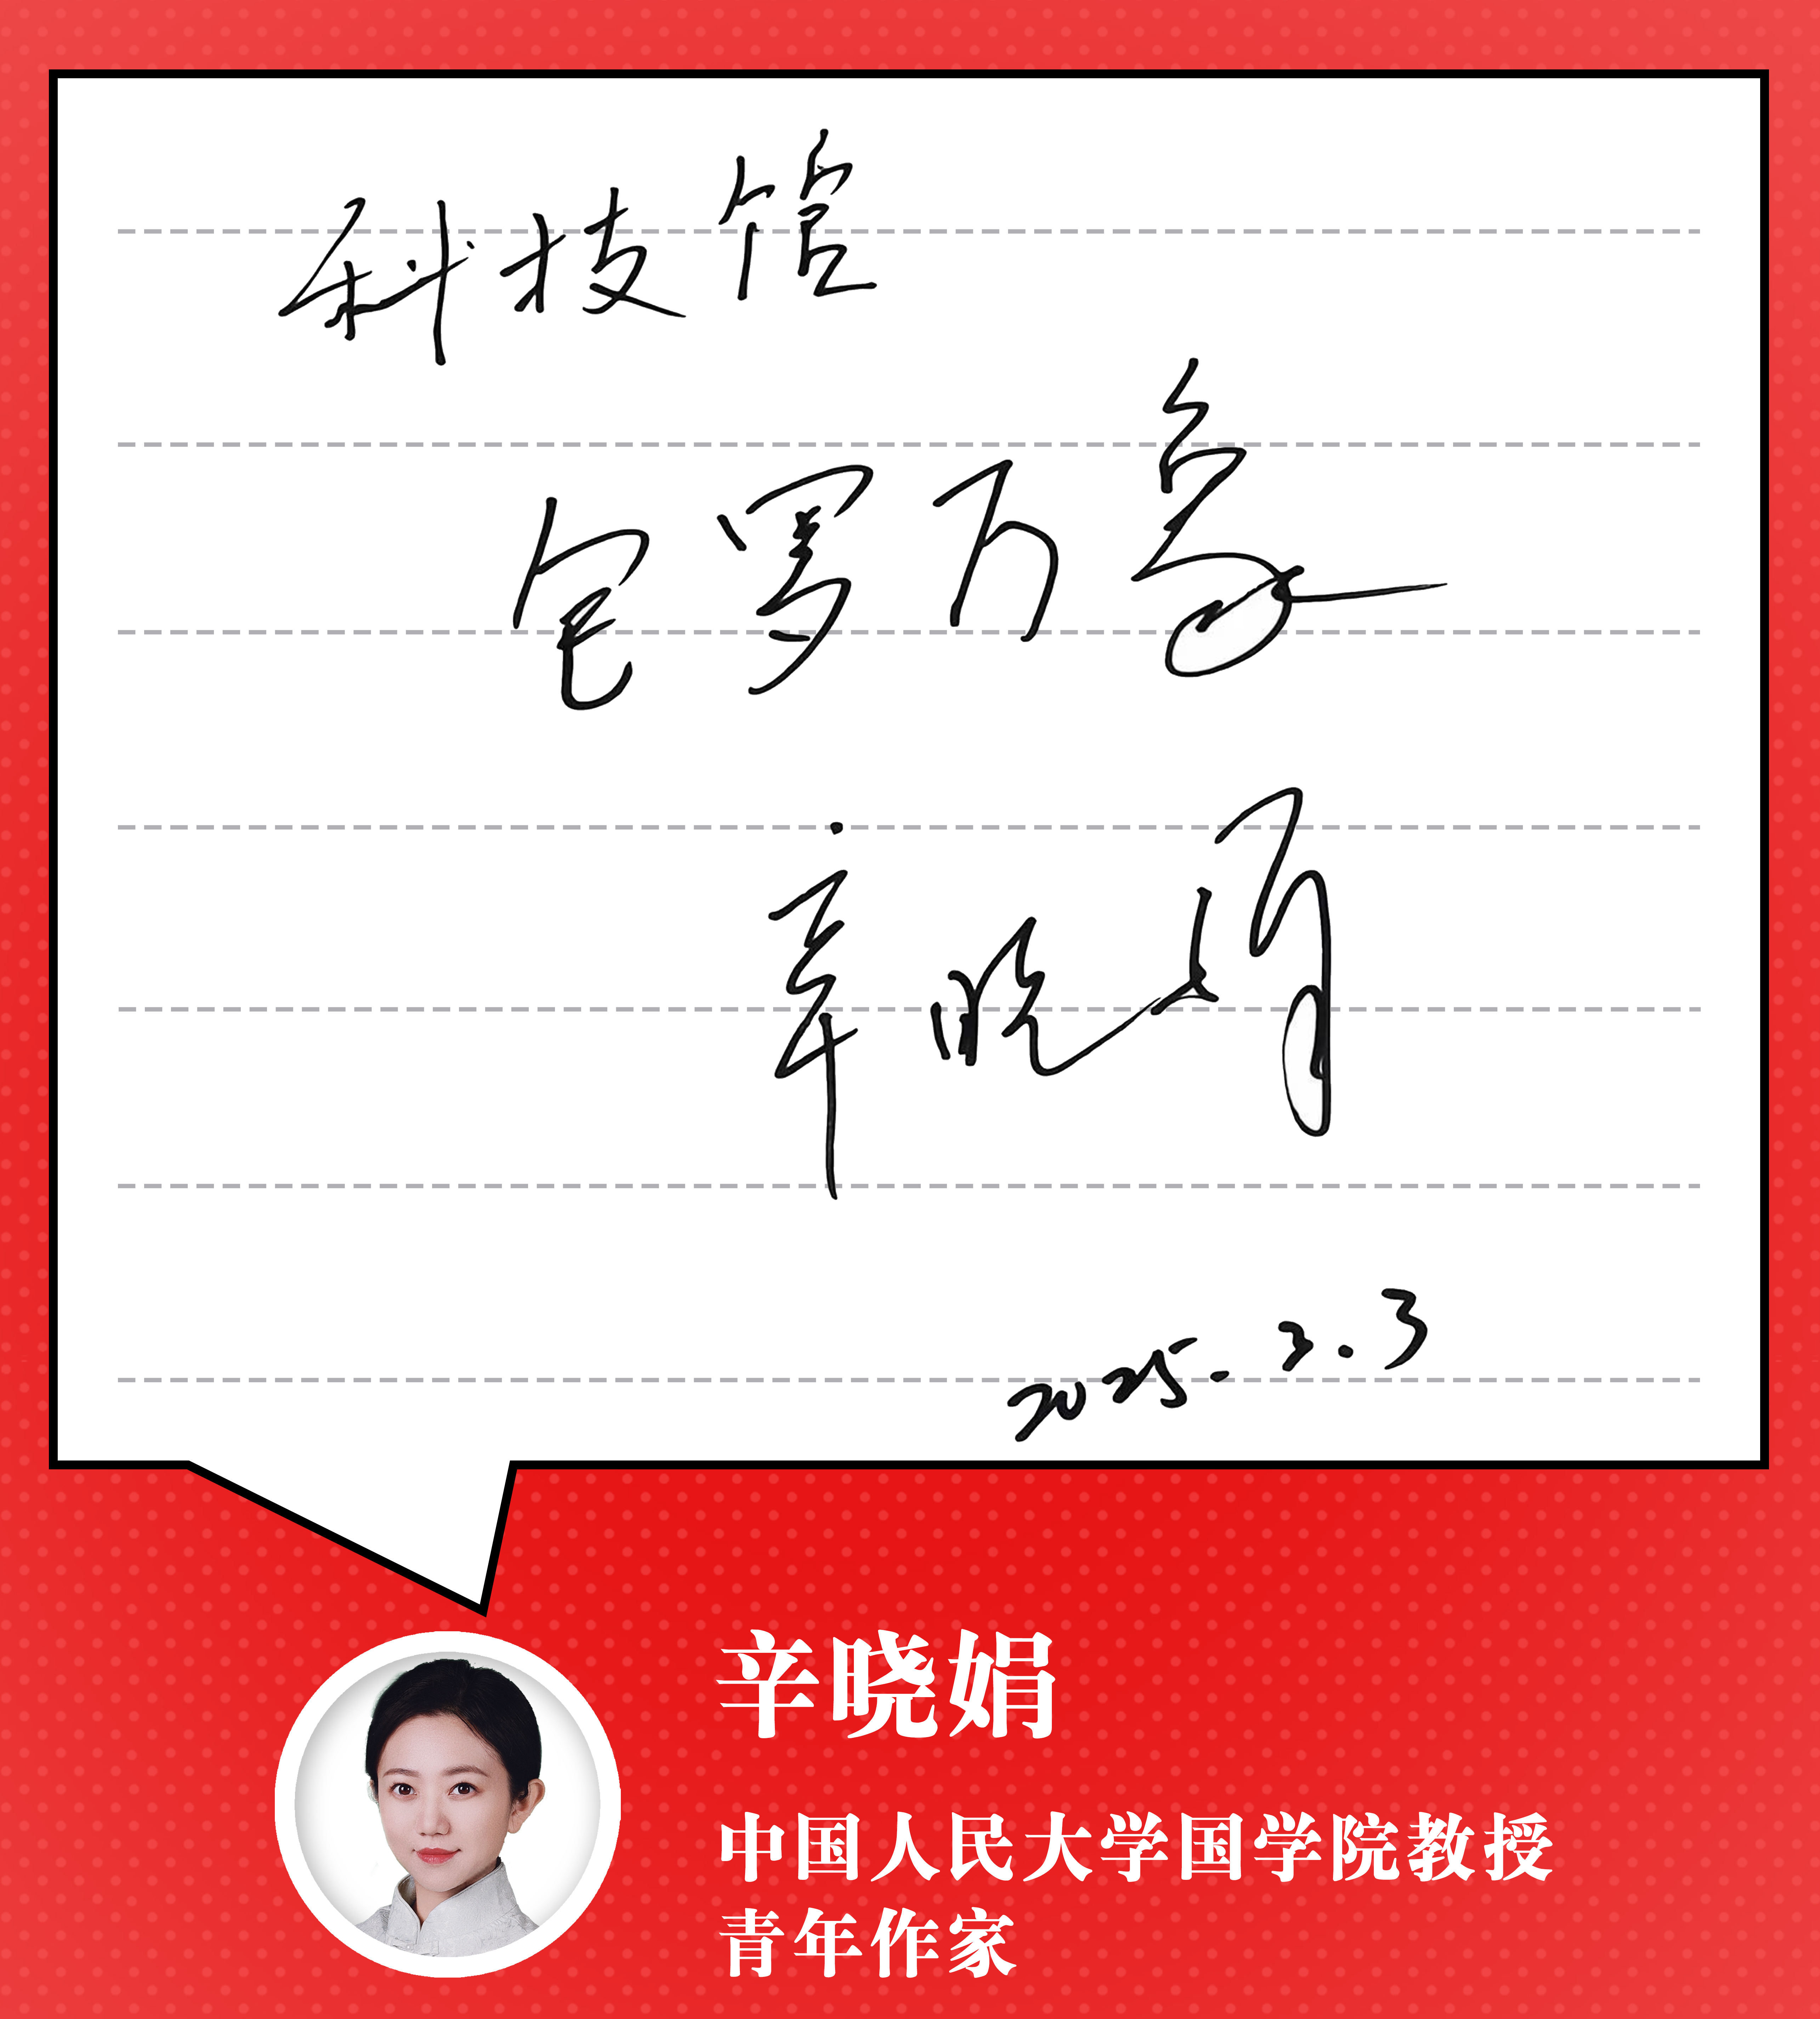 科技馆
包罗万象
辛晓娟
2025.2.3
辛晓娟
中国人民大学国学院教授
青年作家